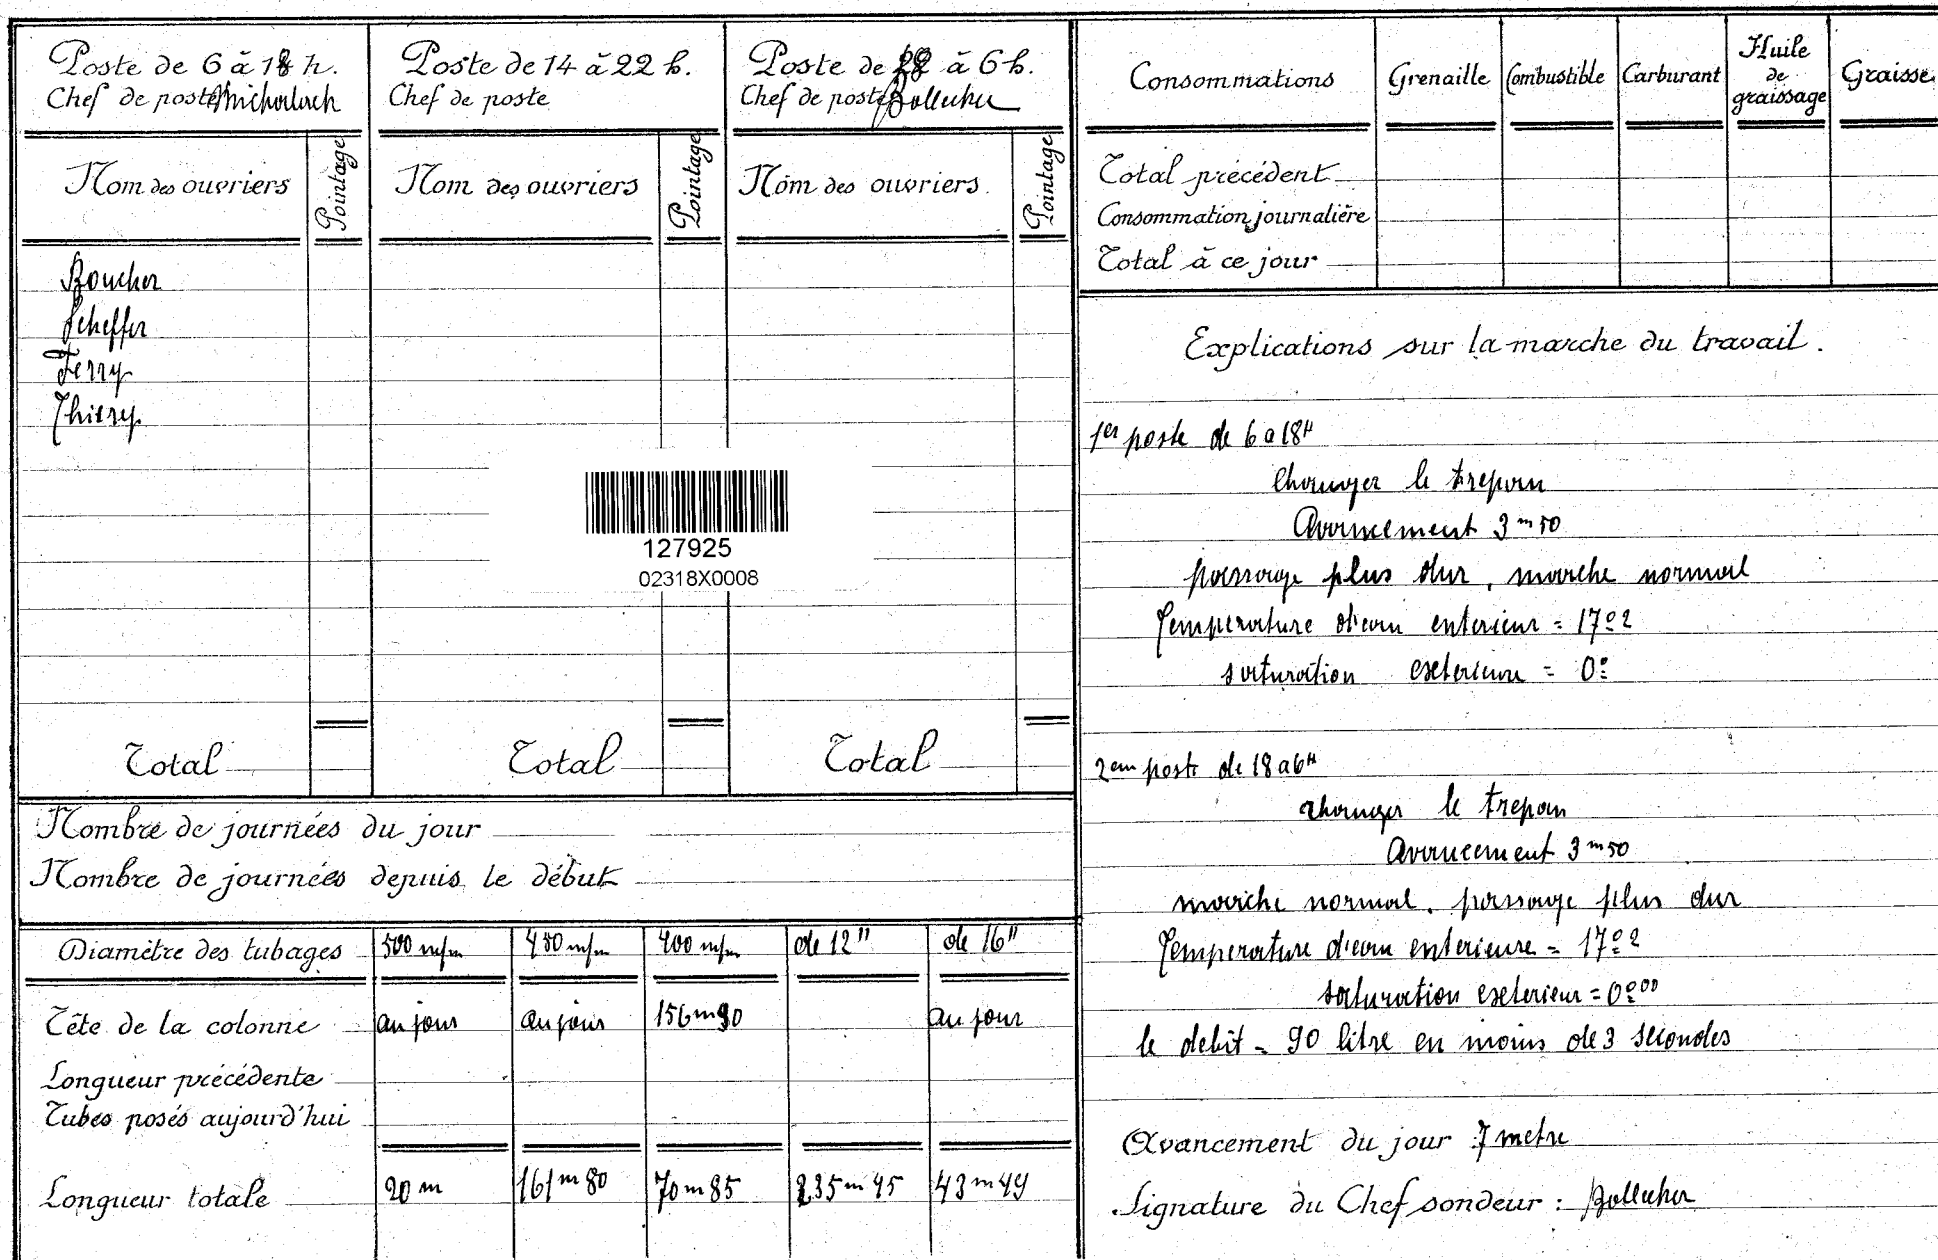 Poste de 6 à 18 h.
Chef de poste
Poste de 14 à 22 h.
Chef de poste
Poste de à 6 h.
Chef de poste Bollecher
Nom des ouvriers
Pointage
Nom des ouvriers
Pointage
Nom des ouvriers
Pointage
Boucher
Scheffer
Ferry
Thiery
127925
02318X0008
Total
Total
Total
Nombre de journées du jour
Nombre de journées depuis le début
Diamètre des tubages 500 m/m 450 m/m 400 m/m de 12" de 16"
Tête de la colonne au jour au jour 156 m 90 au jour
Longueur précédente
Tubes posés aujourd'hui
Longueur totale 20 m 161 m 80 70 m 85 235 m 45 43 m 49
Consommations Grenaille Combustible Carburant Huile de graissage Graisse
Total précédent
Consommation journalière
Total à ce jour
Explications sur la marche du travail.
1er poste de 6 a 18H
Changer le trepan
Avancement 3 m 50
passage plus dur, marche normal
Temperature d'eau enterieur = 17°2
saturation exeterieure = 0°
2em poste de 18 a 6H
changer le trepan
Avancement 3 m 50
marche normal. passage plus dur
Temperature d'eau enterieure = 17°2
saturation exeterieur = 0°00
le debit = 90 litre en moins de 3 secondes
Avancement du jour 7 metre
Signature du Chef sondeur : Bollecher